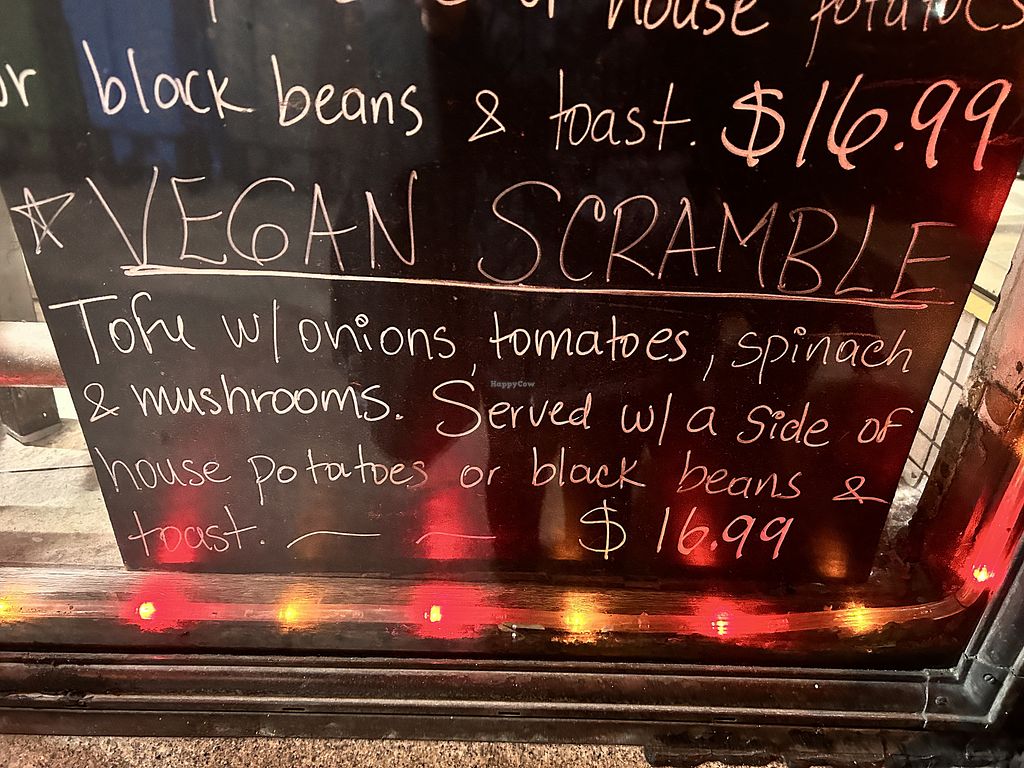 house potatoes
or black beans & toast. $16.99
☆ VEGAN SCRAMBLE
Tofu w/ onions, tomatoes, spinach
& mushrooms. Served w/ a side of
HappyCow
house potatoes or black beans &
toast. $16.99